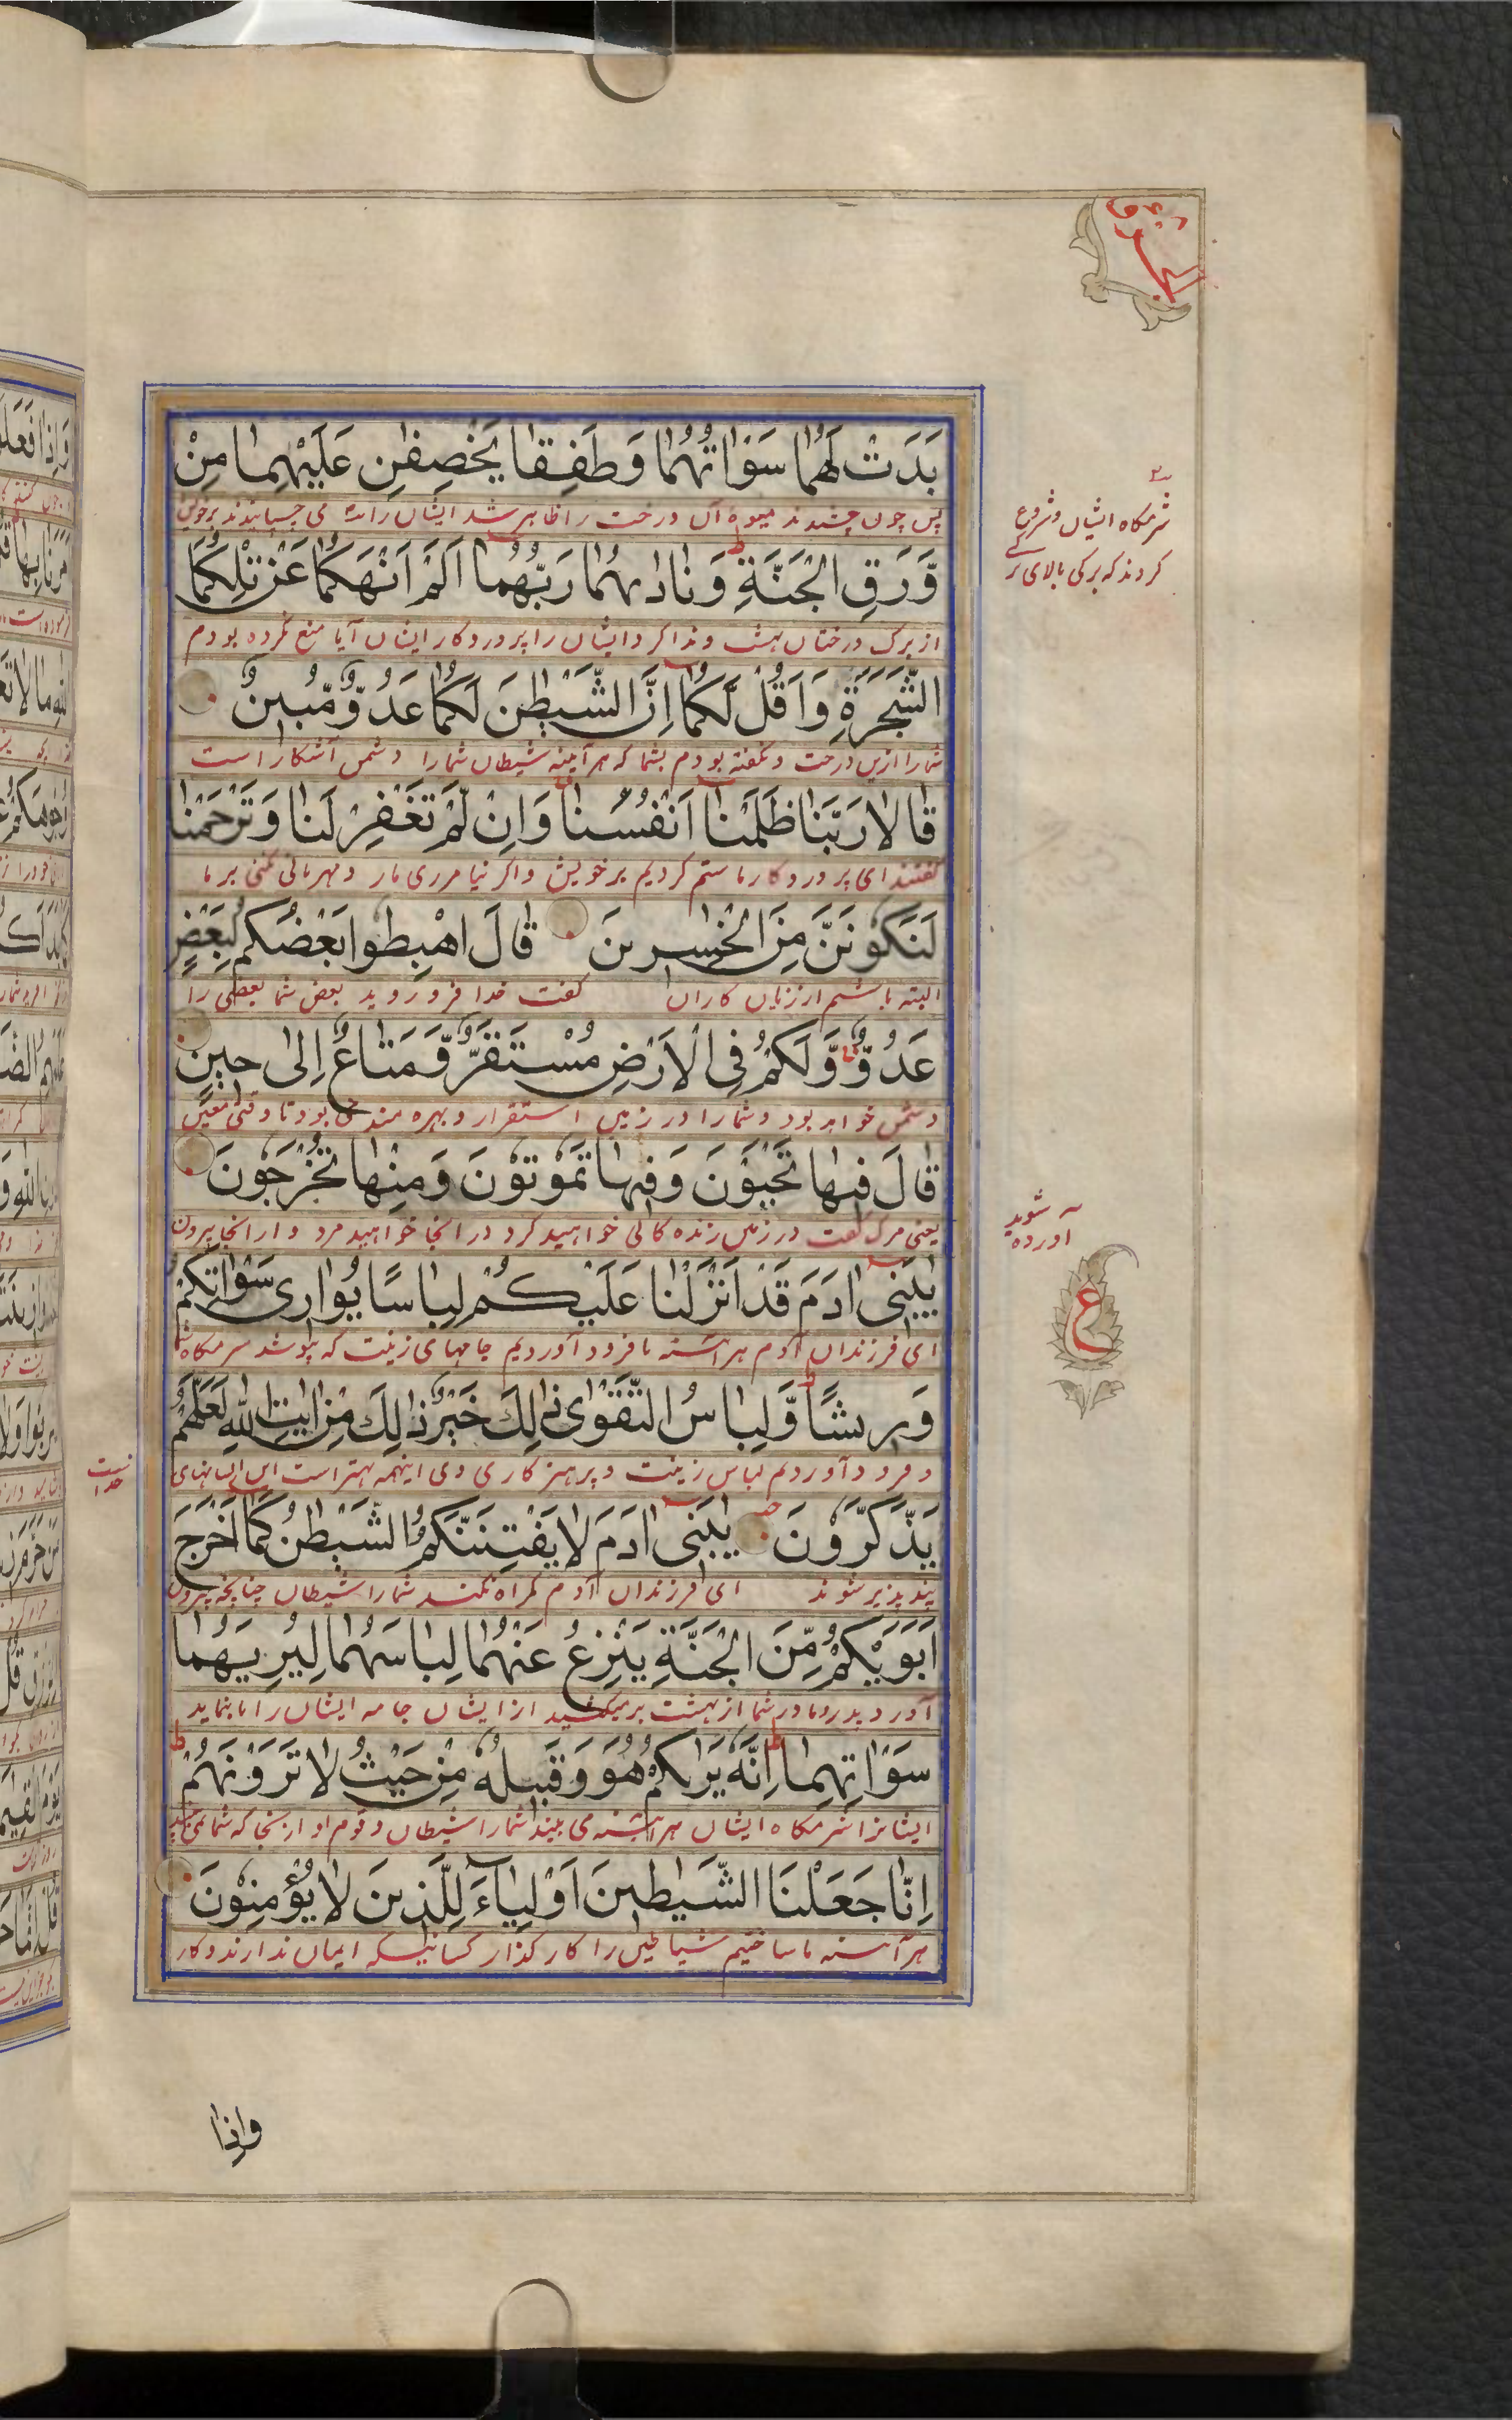 بَدَتْ لَهُمَا سَوْاٰتُهُمَا وَطَفِقَا يَخْصِفٰنِ عَلَيْهِمَا مِنْ
پس چون چشیدند میوه آن درخت را ظاهر شد ایشان را می چسپانیدند برخویش
وَّرَقِ الْجَنَّةِ ط وَنَادٰىهُمَا رَبُّهُمَا اَلَمْ اَنْهَكُمَا عَنْ تِلْكُمَا
از برک درختان بهشت و ندا کرد ایشان را پروردکار ایشان آیا منع نکرده بودم
الشَّجَرَةِ وَاَقُلْ لَّكُمَا اِنَّ الشَّيْطٰنَ لَكُمَا عَدُوٌّ مُّبِيْنٌ
شما را ازین درخت و نکفته بودم بشما که هر آیینه شیطان شما را دشمن آشکار است
قَالَا رَبَّنَا ظَلَمْنَا اَنْفُسَنَا وَاِنْ لَّمْ تَغْفِرْ لَنَا وَتَرْحَمْنَا
کفتند ای پروردکار ما ستم کردیم بر خویش و اکر نیامرزی مار و مهربانی نکنی بر ما
لَنَكُوْنَنَّ مِنَ الْخٰسِرِيْنَ قَالَ اهْبِطُوْا بَعْضُكُمْ لِبَعْضٍ
البته باشیم از زیان کاران کفت خدا فرو روید بعض شما بعضی را
عَدُوٌّ وَّلَكُمْ فِى الْاَرْضِ مُسْتَقَرٌّ وَّمَتَاعٌ اِلٰى حِيْنٍ
دشمن خواهد بود و شما را در زمین استقرار و بهره مندی بود تا وقتی معین
قَالَ فِيْهَا تَحْيَوْنَ وَفِيْهَا تَمُوْتُوْنَ وَمِنْهَا تُخْرَجُوْنَ
کفت در زمین زنده کانی خواهید کرد در انجا خواهید مرد و از انجا بیرون
يٰبَنِىْ اٰدَمَ قَدْ اَنْزَلْنَا عَلَيْكُمْ لِبَاسًا يُّوَارِىْ سَوْاٰتِكُمْ
ای فرزندان آدم هر آئینه ما فرود آوردیم جامهای زینت که بپوشد شرمکاه شما
وَرِيْشًا ط وَّلِبَاسُ التَّقْوٰى ذٰلِكَ خَيْرٌ ذٰلِكَ مِنْ اٰيٰتِ اللّٰهِ لَعَلَّهُمْ
و فرود آوردیم لباس زینت و پرهیزکاری وی اینهمه بهتر است این از نشانهای
يَذَّكَّرُوْنَ يٰبَنِىْ اٰدَمَ لَا يَفْتِنَنَّكُمُ الشَّيْطٰنُ كَمَا اَخْرَجَ
پند پذیر شوند ای فرزندان آدم کمراه نکند شما را شیطان چنانچه بیرون
اَبَوَيْكُمْ مِّنَ الْجَنَّةِ يَنْزِعُ عَنْهُمَا لِبَاسَهُمَا لِيُرِيَهُمَا
آورد پدر و مادر شما از بهشت بر میکشید از ایشان جامه ایشان را تا بنماید
سَوْاٰتِهِمَا ط اِنَّهٗ يَرٰىكُمْ هُوَ وَقَبِيْلُهٗ مِنْ حَيْثُ لَا تَرَوْنَهُمْ ط
ایشانرا شرمکاه ایشان هر آئینه می بیند شما را شیطان و قوم او از انجا که شما نمی بینید
اِنَّا جَعَلْنَا الشَّيٰطِيْنَ اَوْلِيَآءَ لِلَّذِيْنَ لَا يُؤْمِنُوْنَ
هر آئینه ما ساختیم شیاطین را کار کذار کسانیکه ایمان ندارند و کار
شرمکاه ایشان و شروع
کردند که برکی بالای
آورده شوید
ع
خدا
واذا